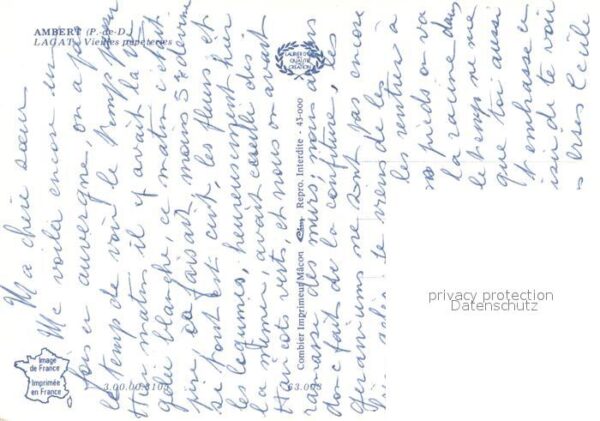 AMBERT (P.-de-D.)
LAGAT - Vieilles papeteries
LAURIERS DE LA QUALITE CREATION
Image
de France
Imprimée
en France
3.00.00.3103
63.003
Combier Imprimeur Mâcon Cim Repro. Interdite - 45-000
Ma chère sœur
Me voilà encore une
fois en auvergne, on a pas
le temps de voir le temps passer
Hier matin il y avait la
gelée blanche, ce matin c'est
pire, ça faisait moins 5 degrés
si tout est cuit, les fleurs et
les légumes, heureusement hier
la mémé, avait cueilli des
Haricots verts, et nous on avait
ramassé des murs, nous avons
donc fait de la confiture, les
géraniums ne sont pas encore
je viens de les
rentrer à
les pieds on va
la racine dans
le temp ne me
que toi aussi
t'embrasse en
de te voir
Cécile
privacy protection
Datenschutz